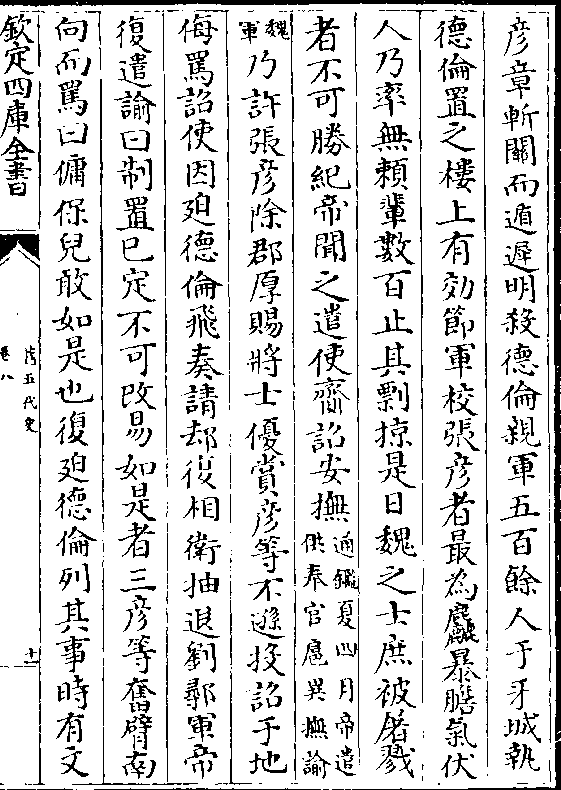 彦章斬關而遁遲明殺德倫親軍五百餘人于牙城執
德倫置之樓上有効節軍校張彦者最為麤暴膽氣伏
人乃率無頼輩數百止其剽掠是日魏之士庶被屠戮
者不可勝紀帝聞之遣使齎詔安撫通鑑夏四月帝遣供奉官扈異撫諭
魏軍乃許張彦除郡厚賜將士優賞彦等不遜投詔于地
侮罵詔使因廹德倫飛奏請却復相衛抽退劉鄩軍帝
復遣諭曰制置已定不可改易如是者三彦等奮臂南
向而罵曰傭保兒敢如是也復廹德倫列其事時有文
欽定四庫全書
舊五代史
卷八
十一